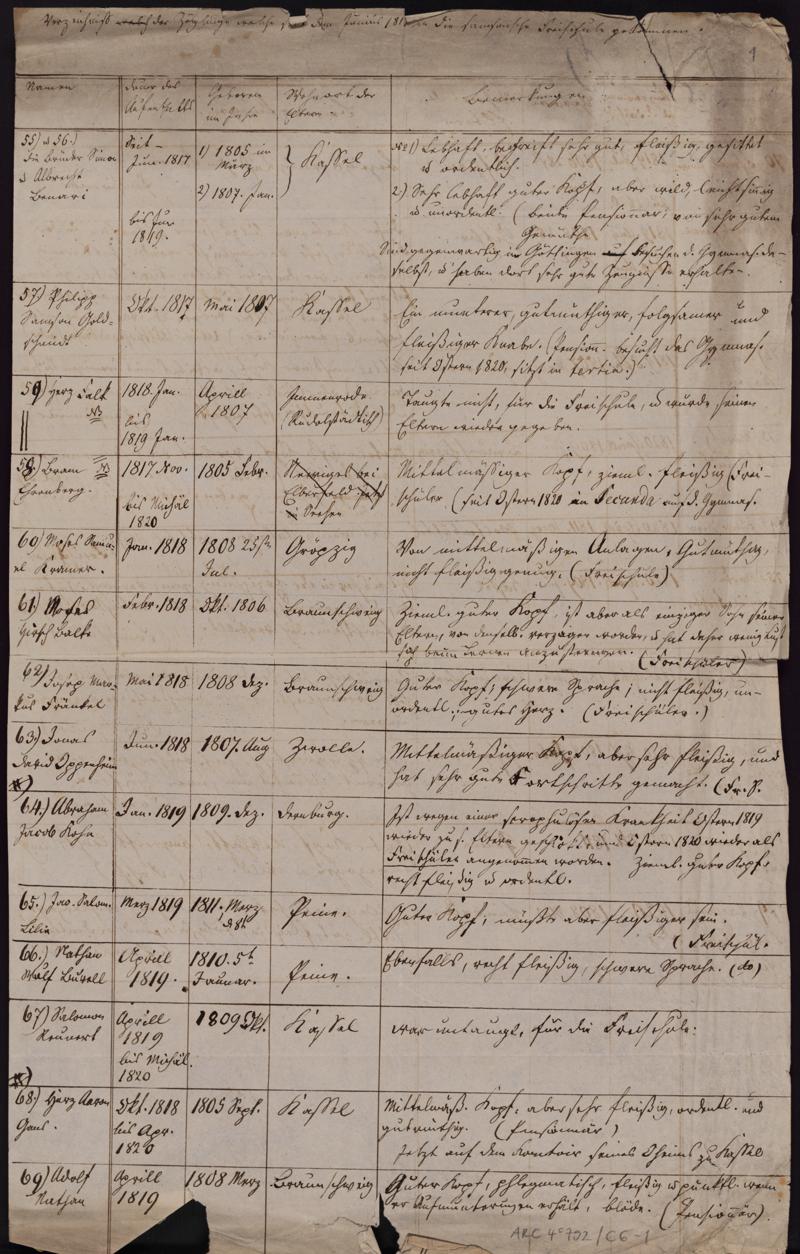 Verzeichniß der Zöglinge welche seit dem Junius 181 in die samsonsche Freischule gekommen.
1
Namen
dauer des Aufenthalts
Geboren im Jahre
Wohnort der Eltern
Bemerkungen
55) u 56.)
die Brüder Simon
u Albrecht
Benari
Seit
Jun. 1817
bis Jun
1819.
1) 1805 im
März
2) 1807. Jan.
Kassel
1) Lebhaft, begreift sehr gut, fleißig, gesittet
u ordentlich.
2) Sehr lebhaft guter Kopf, aber wild, leichtsinnig
u unordentl. (beide Pensionnär, von sehr gutem
Gemüthe
Sind gegenwärtig in Göttingen besuchen d. Gymnas. da-
selbst, u haben dort sehr gute Zeugnisse erhalten.
57) Philipp
Samson Gold-
schmidt
Okt. 1817
Mai 1807
Kassel
Ein munterer, gutmüthiger, folgsamer und
fleißiger Knabe. (Pension. besucht das Gymnas.
seit Ostern 1820, sitzt in tertia.)
59) Herz Falk
NB
1818. Jan.
bis
1819 Jan.
Aprill
1807
Immenrode
(Rudolstädtisch)
Taugte nicht, für die Freischule, u wurde seinen
Eltern wieder gegeben.
58.) Bram NB
Ehrenberg.
1817. Nov.
bis Michäl
1820
1805 Febr.
Neviges bei
Elberfeld jetzt
in Seesen
Mittelmässiger Kopf, zieml. fleißig (Frei-
schüler. (seit Ostern 1820 in Secunda auf d. Gymnas.
60) Moses Samu-
el Kramer.
Jan. 1818
1808 25sten
Jul.
Gröpzig
Von mittelmäßigen Anlagen, Gutmüthig,
nicht fleißig genug. (Freischüle)
61.) Moses
Hirsch Balke
Febr. 1818
Okt. 1806
Braunschweig
Zieml. guter Kopf, ist aber als einziger Sohn seiner
Eltern, von denselb. verzogen worden, u hat daher wenig Lust
sich beim Lernen anzustrengen. (Freischüler)
62) Josep Mar-
kus Fränkel
Mai 1818
1808 dez.
Braunschweig
Guter Kopf; schwere Sprache; nicht fleißig, un-
ordentl.; gutes Herz. (Freischüler.)
63.) Jonas
David Oppenheim
Jun. 1818
1807. Aug
Zwolle.
Mittelmäßiger Kopf, aber sehr fleißig, und
hat sehr gute Fortschritte gemacht. (Fr. S.
64.) Abraham
Jacob Kohn
Jan. 1819
1809. dez.
Bernburg.
Ist wegen einer scrophulösen Krankheit Ostern 1819
wieder zu s. Eltern geschickt und Ostern 1820 wieder als
Freischüler angenommen worden. Zieml. guter Kopf,
recht fleißig u ordentl.
65.) Jac. Salom.
Lilie
Merz 1819
1811. Merz
d. 8t
Peine.
Guter Kopf, müßte aber fleißiger sein.
(Freischül.
66.) Nathan
Wolf
Aprill
1819.
1810. 5t
Januar.
Peine.
Ebenfalls, recht fleißig, schwere Sprache. (do)
67) Salomon
Aprill
1819
bis Michäl.
1820
1809 Okt.
Kassel
war untaugl. für die Freischule.
68.) Herz Aaron
Gans.
Okt. 1818
bis Apr.
1820
1805 Sept.
Kassel
Mittelmäß. Kopf, aber sehr fleißig, ordentl. und
gutmüthig. (Pensionnär)
Jetzt auf dem Komtoir seines Oheims zu Kassel
69) Adolf
Nathan
Aprill
1819
1808 Merz
Braunschweig
Guter Kopf, phlegmatisch, fleißig u pünktl. wenn
er Aufmunterungen erhält, blöde. (Pensionnär).
ARC 4° 792 / C6-1